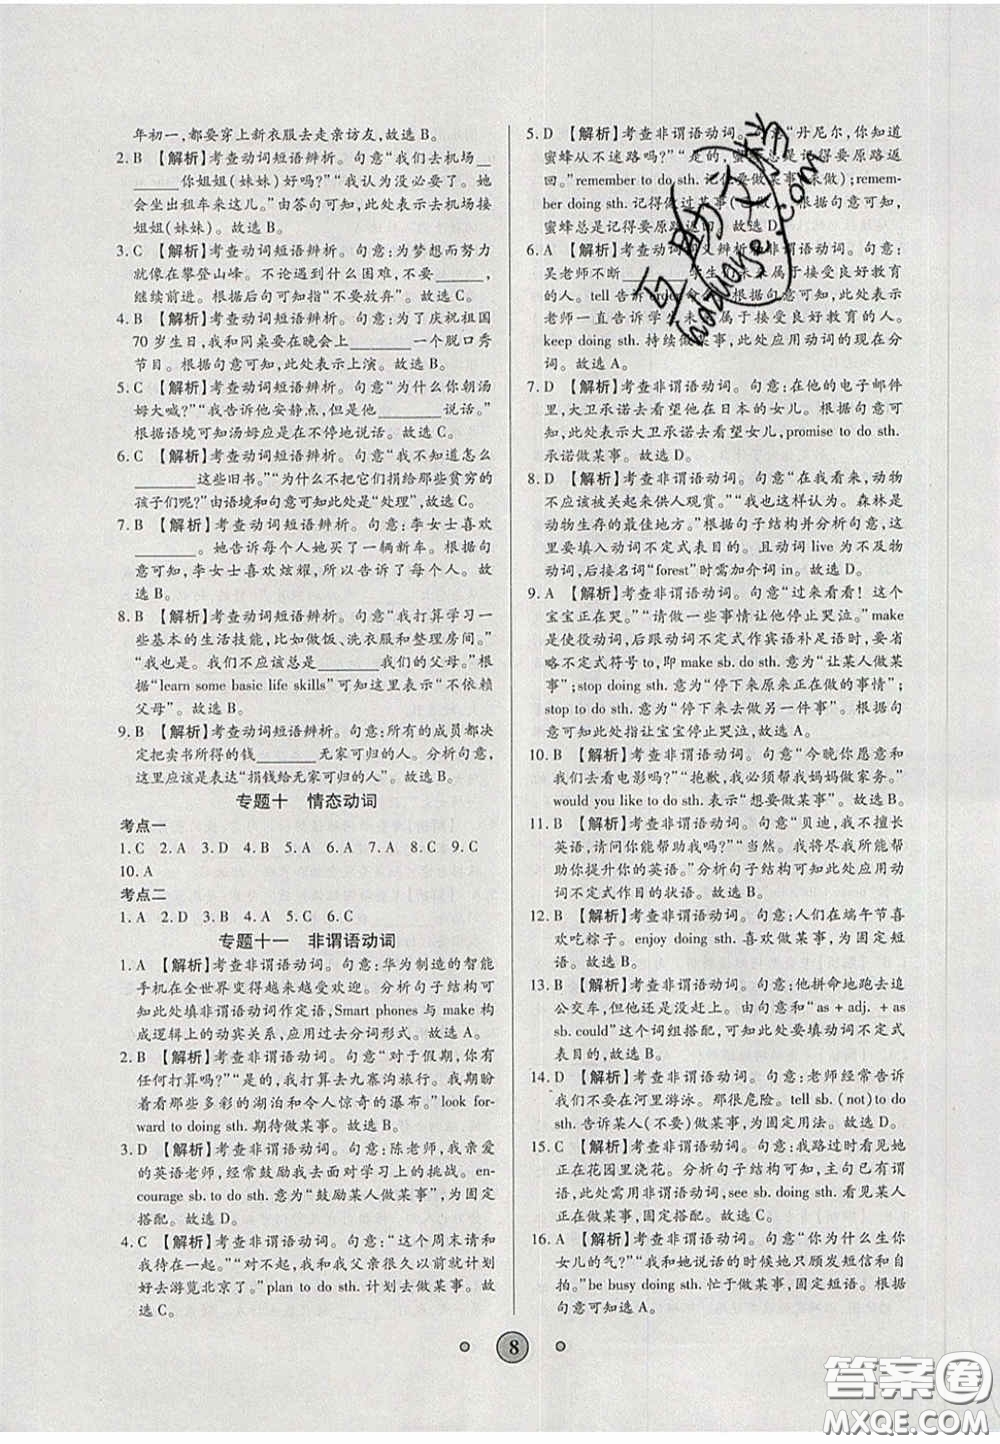 年初一,都要穿上新衣服去走亲访友。故选 B。
2. B 【解析】考查动词短语辨析。句意“我们去机场
________你姐姐(妹妹)好吗?”“我认为没必要了。她
会坐出租车来这儿。”由答句可知,此处表示去机场接
姐姐(妹妹)。故选 B。
3. C 【解析】考查动词短语辨析。句意:为梦想而努力
就像在攀登山峰。不论遇到什么困难,不要________,
继续前进。根据后句可知“不要放弃”。故选 C。
4. B 【解析】考查动词短语辨析。句意:为了庆祝祖国
70 岁生日,我和同桌在晚会上________一个脱口秀
节目。根据句意可知,此处表示上演。故选 B。
5. C 【解析】考查动词短语辨析。句意“为什么你朝汤
姆大喊?”“我告诉他安静点,但是他________说话。”
根据语境可知汤姆应是在不停地说话。故选 C。
6. C 【解析】考查动词短语辨析。句意“我不知道怎么
________这些旧书。”“为什么不把它们捐给那些贫穷的
孩子们呢?”由语境和句意可知此处是“处理”,故选 C。
7. B 【解析】考查动词短语辨析。句意:李女士喜欢
________。她告诉每个人她买了一辆新车。根据句
意可知,李女士喜欢炫耀,所以告诉了每一个人。故
选 B。
8. B 【解析】考查动词短语辨析。句意“我打算学习一
些基本的生活技能,比如做饭、洗衣服和整理房间。”
“我也是。我们不应该总是________我们的父母。”根
据“learn some basic life skills”可知这里表示“不依赖
父母”。故选 B。
9. B 【解析】考查动词短语辨析。句意:所有的成员都决
定把卖书所得的钱________无家可归的人。分析句意,
这里应该是表达“捐钱给无家可归的人”。故选 B。
专题十 情态动词
考点一
1. C 2. A 3. D 4. B 5. A 6. A 7. A 8. C 9. C
10. A
考点二
1. A 2. D 3. B 4. A 5. C 6. C
专题十一 非谓语动词
1. A 【解析】考查非谓语动词。句意:华为制造的智能
手机在全世界变得越来越受欢迎。分析句子结构可
知此填非谓语动词作定语,Smart phones 与 make 构
成逻辑上的动宾关系,应用过去分词形式。故选 A。
2. B 【解析】考查非谓语动词。句意“对于假期,你有
任何打算吗?”“是的,我打算去九寨沟旅行。我盼望
着看一些多彩的湖泊和令人惊奇的瀑布。”look for-
ward to doing sth. 期待做某事。故选 B。
3. D 【解析】考查非谓语动词。句意:陈老师,我亲爱
的英语老师,经常鼓励我去面对学习上的挑战。en-
courage sb. to do sth. 意为“鼓励某人做某事”,为固定
搭配。故选 D。
4. C 【解析】考查非谓语动词。句意:“这个周末请和
我待在一起。”“对不起,我和我父亲很久以前就计划
好去游览北京了。”plan to do sth. 计划去做某事。故
选 C。
5. D 【解析】考查非谓语动词。句意“丹尼尔,你知道
蜜蜂从不迷路吗?”“是的,蜜蜂总是记得要原路返
回。”remember to do sth. 记住要做某事(未做);remem-
ber doing sth. 记得做过某事(已做)。根据句意可知,
蜜蜂总是记得要原路返回。故选 D。
6. A 【解析】考查动词词义辨析和非谓语动词。句意:
吴老师不断________学生们未来属于接受良好教育
的人。tell 告诉;order 命令。根据句意可知,此处表示
老师一直告诉学生未来属于接受良好教育的人。
keep doing sth. 持续做某事,此处应用动词的现在分
词。故选 A。
7. D 【解析】考查非谓语动词。句意:在他的电子邮件
里,大卫承诺去看望他在日本的女儿。根据句意可
知,此处表示大卫承诺去看望女儿,promise to do sth.
承诺做某事。故选 D。
8. D 【解析】考查非谓语动词。句意“在我看来,动物
不应该被关起来供人观赏。”“我也这样认为。森林是
动物生存的最佳地方。”根据句子结构并分析句意,这
里要填入动词不定式表目的。且动词 live 为不及物
动词,后接名词“forest”时需加介词 in。故选 D。
9. A 【解析】考查非谓语动词。句意“过来看看!这个
宝宝正在哭。”“请做一些事情让他停止哭泣。”make
是使役动词,后跟动词不定式作宾语补足语时,要省
略不定式符号 to,即 make sb. do sth. 意为“让某人做某
事”;stop doing sth. 意为“停下来原来正在做的事情”;
stop to do sth. 意为“停下来去做另一件事”。根据句
意可知此处指让宝宝停止哭泣。故选 A。
10. B 【解析】考查非谓语动词。句意“今晚你愿意和
我们去看电影吗?”“抱歉,我必须帮妈妈做家务。”
would you like to do sth. 表示“想要做某事”。故选 B。
11. B 【解析】考查非谓语动词。句意“贝迪,我不擅长
英语,请问你能帮助我吗?”“当然。我将尽我所能帮
助你提升你的英语。”分析句子结构可知此处应用动
词不定式作目的状语。故选 B。
12. B 【解析】考查非谓语动词。句意:人们在端午节喜
欢吃粽子。enjoy doing sth. 喜欢做某事,为固定短
语。故选 B。
13. B 【解析】考查非谓语动词。句意:他拼命地跑去追
公交车,但是没赶上。由句意和“as + adj. + as
sb. could”这个词组搭配,可知此处要填动词不定式
表目的。故选 B。
14. D 【解析】考查非谓语动词。句意:老师经常告诉
我们不要在河里游泳。那很危险。tell sb. (not) to do
sth. 告诉某人(不要)做某事,为固定用法。故选 D。
15. C 【解析】考查非谓语动词。句意:我路过时看见她
正在花园里浇花。分析句子结构可知,主句已有谓
语,此处需用非谓语动词,see sb. doing sth. 看见某人
正在做某事,固定搭配。故选 C。
16. A 【解析】考查非谓语动词。句意“你为什么生你
女儿的气?”“我和她说话的时候她只顾发短信和自
拍。”be busy doing sth. 忙于做某事,固定短语。根据
句意可知选 A。
8
互助文档
hdzuoye.com
答案圈
MXQE.COM